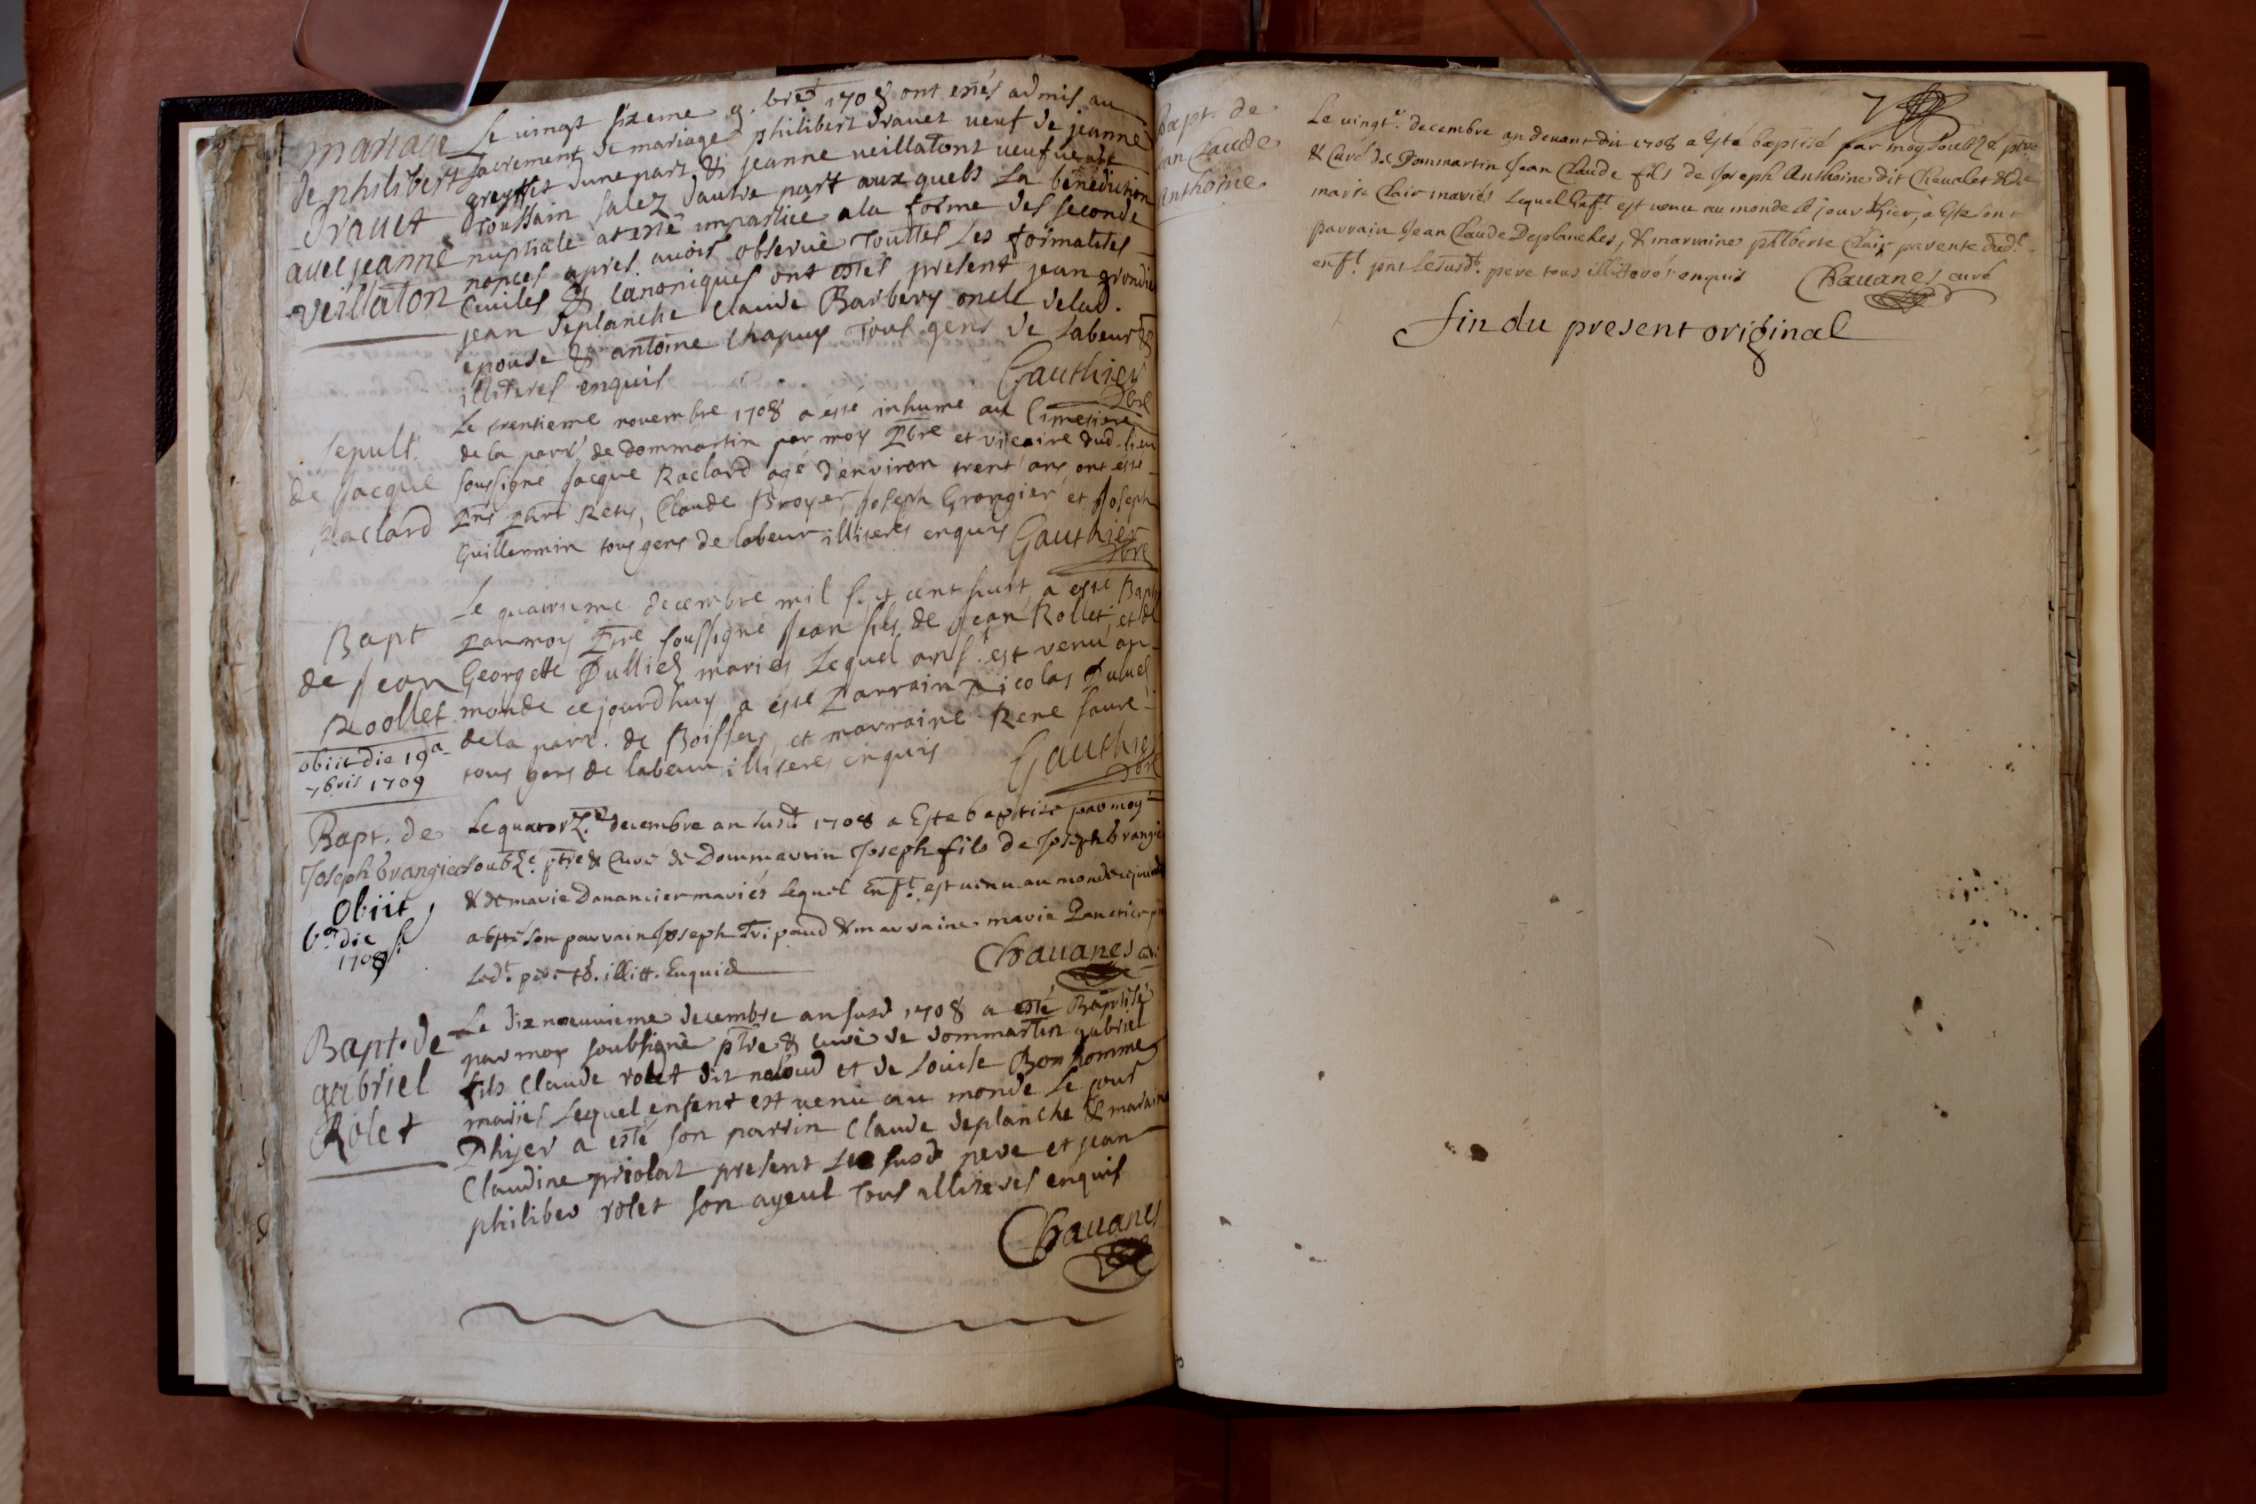 mariage
de philibert
Dravet
avec jeanne
veillaton
Le vingt sizeme 9.bre 1708 ont estés admis au
sacrement de mariage philibert Dravet veuf de jeanne
greyffet d'une part & jeanne veillatont veufve de
Toussain salez dautre part aux quels la benediction
nuptiale at esté impartiée a la forme des seconde
nopces apres avoir observé touttes les formalités
civiles & canoniques ont estés present jean grondié
jean deplanche Claude Barbery oncle delad.
epouse & antoine chapuy tous gens de labeur &
illiteres enquis
Gauthier
pbre
sepult.
de jacque
Raclard
Le trentieme novembre 1708 a esse inhumé au Cimetiere
de la parr. de dommartin par moy pbre et vicaire dud. lieu
soussigné jacque Raclard agé d'environ trent'ans ont esse
Claude Broyer, joseph Grangier et joseph
Guillermin tous gens de labeur illiterés enquis
Gauthier
pbre
Bapt
de jean
Roollet
obiit die 19a
7bris 1709
Le quatrieme decembre mil sept cent huit a esse Bapt
par moy pre soussigné jean fils de jean Rollet, et de
Georgette Pulliez mariés Lequel anf.t est venu au
monde ce jourdhuy a esse parrain Nicolas
de la parr. de Boissey, et marraine Rene favre
tous gens de labeur illiterés enquis
Gauthier
pbre
Bapt. de
Joseph brangier
Obiit
die
1708
Le quatorz.e decembre an susd. 1708 a Esté baptisé par moy
soubz.é ptre & Curé de Dommartin Joseph fils de Joseph brangie
& de marie Danancier mariés Lequel Enf.t est venu au monde
a esté son parrain Joseph Tripaud & marraine marie Pancticr
Led.t pere illitt. Enquis
Chavanes
Bapt. de
gabriel
Rolet
Le dix neuvieme decembre an susd 1708 a esté Baptisé
par moy soubsigné ptre & curé de dommartin gabriel
fils Claude rolet dit naloud et de Louise Bonhomme
mariés Lequel enfent est venu au monde Le jour
D'hyer a esté son parrin Claude deplanche & maraine
Claudine priolat present Le susd pere et jean
philiber rolet son ayeul tous illiteres enquis
Chavanes
bapt. de
jan Claude
Anthoine
Le vingt.e decembre an devant dit 1708 a Esté baptisé par moy soubz.é ptre
& Curé de Dommartin Jean Claude fils de Joseph Anthoine dit Chevalet & de
marie Clair mariés Lequel Enf.t est venu au monde le jour d'hier, a Esté son
parrain Jean Claude Deplanches, & marraine philberte Clair parente dud.t
enf.t pnt Lesusd.t pere tous illiterés enquis
Chavanes curé
fin du present original